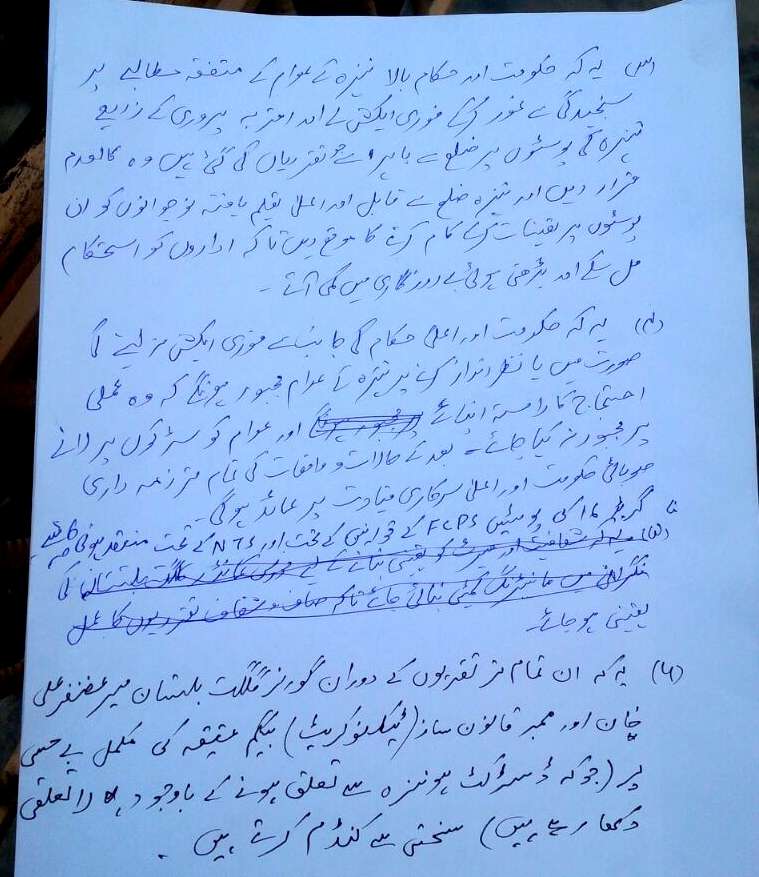 (۳) یہ کہ حکومت اور حکام بالا ہنزہ کے عوام کے متفقہ مطالبے پر
سنجیدگی سے غور کرکے فوری ایکشن لے اور اقربہ پروری کے ذریعے
ہنزہ کی پوسٹوں پر ضلع سے باہر سے جو تقرریاں کی گئی ہیں وہ کالعدم
قرار دیں اور ہنزہ ضلع سے قابل اور اعلیٰ تعلیم یافتہ نوجوانوں کو ان
پوسٹوں پر تعینات کرکے کام کرنے کا موقع دیں تاکہ اداروں کو استحکام
مل سکے اور بڑھتی ہوئی بے روزگاری میں کمی آئے۔
(۴) یہ کہ حکومت اور اعلیٰ حکام کی جانب سے فوری ایکشن نہ لینے کی
صورت میں یا نظر انداز کرنے پر ہنزہ کے عوام مجبور ہونگے کہ وہ عملی
احتجاج کا راستہ اپنائے اور عوام کو سڑکوں پر لانے
پر مجبور نہ کیا جائے۔ بعد کے حالات و واقعات کی تمام تر ذمہ داری
صوبائی حکومت اور اعلیٰ سرکاری قیادت پر عائد ہوگی۔
گریڈ 16 کی پوسٹیں FCPS کے قوانین کے تحت اور NTS کے تحت منعقد ہونی چاہیے
(۵) یہ کہ شفافیت اور میرٹ کو یقینی بنانے کے لیے فورس کمانڈر گلگت بلتستان کی
نگرانی میں مانیٹرنگ کمیٹی بنائی جائے تاکہ صاف و شفاف تقرریوں کا عمل
یقینی ہو جائے۔
(۶) یہ کہ ان تمام تر تقرریوں کے دوران گورنر گلگت بلتستان میر غضنفر علی
خان اور ممبر قانون ساز (ٹیکنوکریٹ) بیگم عتیقہ کی مکمل بے حسی
پر (جو کہ ڈسٹرکٹ ہونزہ سے تعلق ہونے کے باوجود لاتعلقی
دکھا رہے ہیں) سختی سے کنڈم کرتے ہیں۔